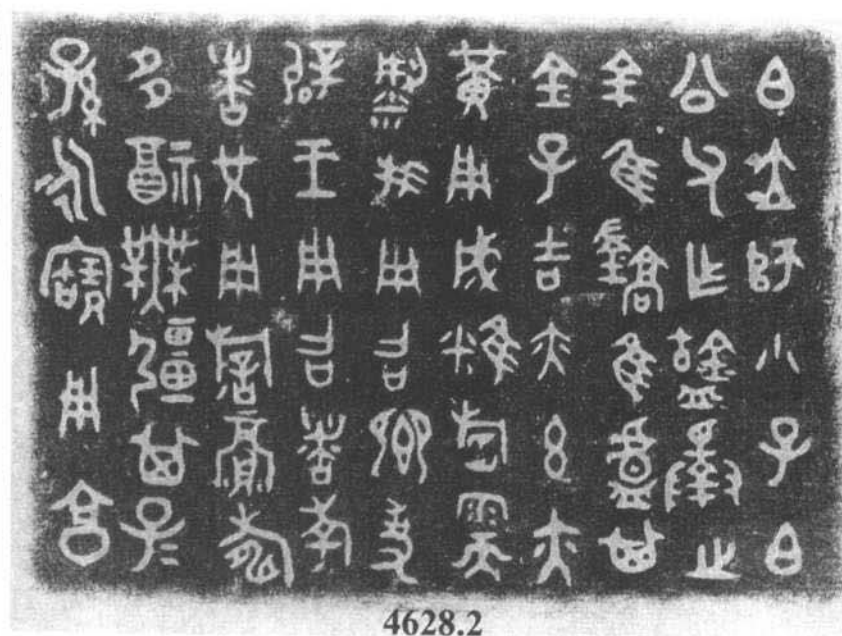 白大師小子白
公父乍𥂴擇之
金隹鐈隹盧其
金孔吉亦玄亦
黃用成
我用召卿事
辟王用召者考
者兄用旂眉壽
多福無疆其子
孫永寶用享
4628.2